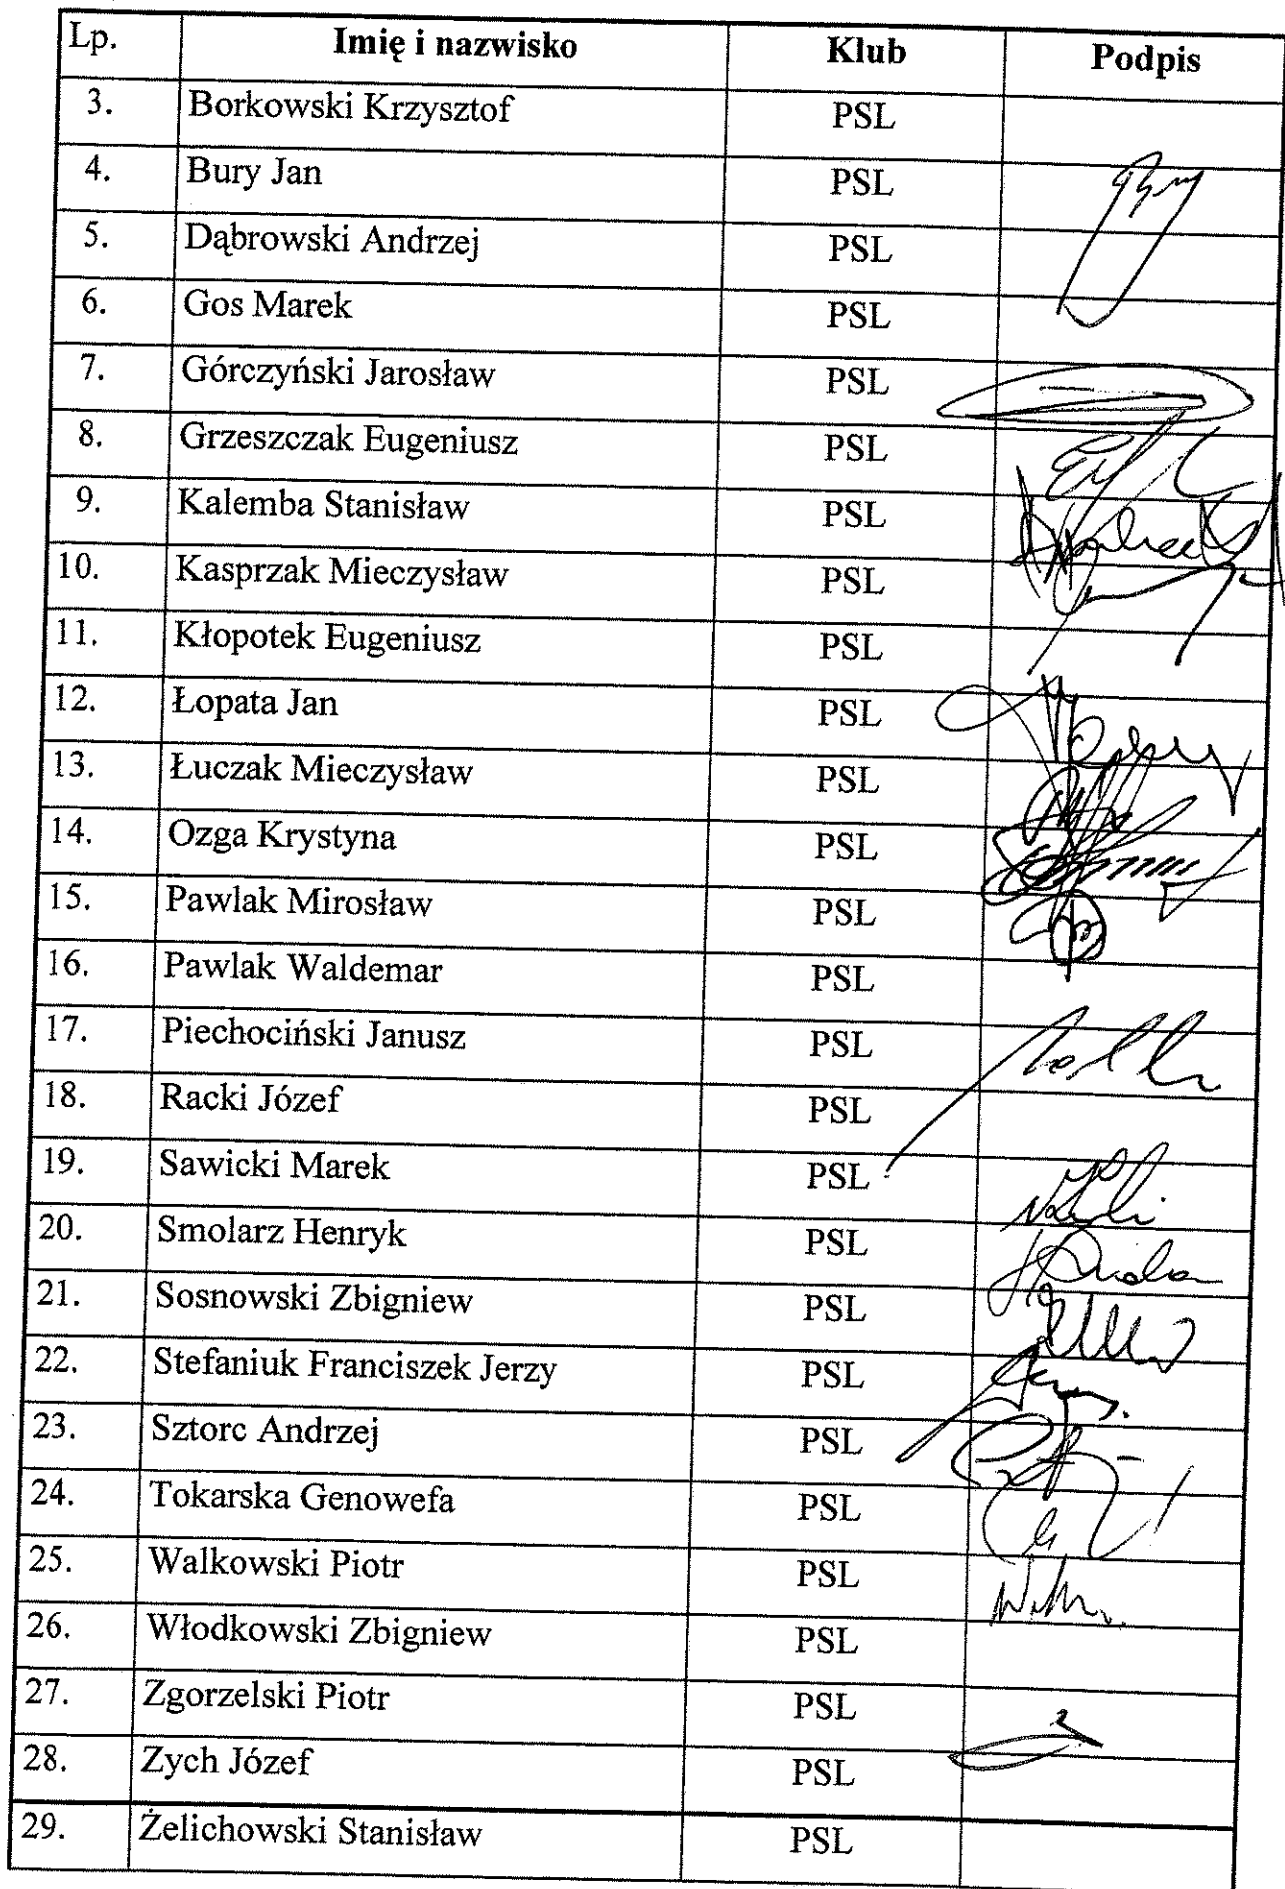 Lp. Imię i nazwisko Klub Podpis
3. Borkowski Krzysztof PSL
4. Bury Jan PSL
5. Dąbrowski Andrzej PSL
6. Gos Marek PSL
7. Górczyński Jarosław PSL
8. Grzeszczak Eugeniusz PSL
9. Kalemba Stanisław PSL
10. Kasprzak Mieczysław PSL
11. Kłopotek Eugeniusz PSL
12. Łopata Jan PSL
13. Łuczak Mieczysław PSL
14. Ozga Krystyna PSL
15. Pawlak Mirosław PSL
16. Pawlak Waldemar PSL
17. Piechociński Janusz PSL
18. Racki Józef PSL
19. Sawicki Marek PSL
20. Smolarz Henryk PSL
21. Sosnowski Zbigniew PSL
22. Stefaniuk Franciszek Jerzy PSL
23. Sztorc Andrzej PSL
24. Tokarska Genowefa PSL
25. Walkowski Piotr PSL
26. Włodkowski Zbigniew PSL
27. Zgorzelski Piotr PSL
28. Zych Józef PSL
29. Żelichowski Stanisław PSL